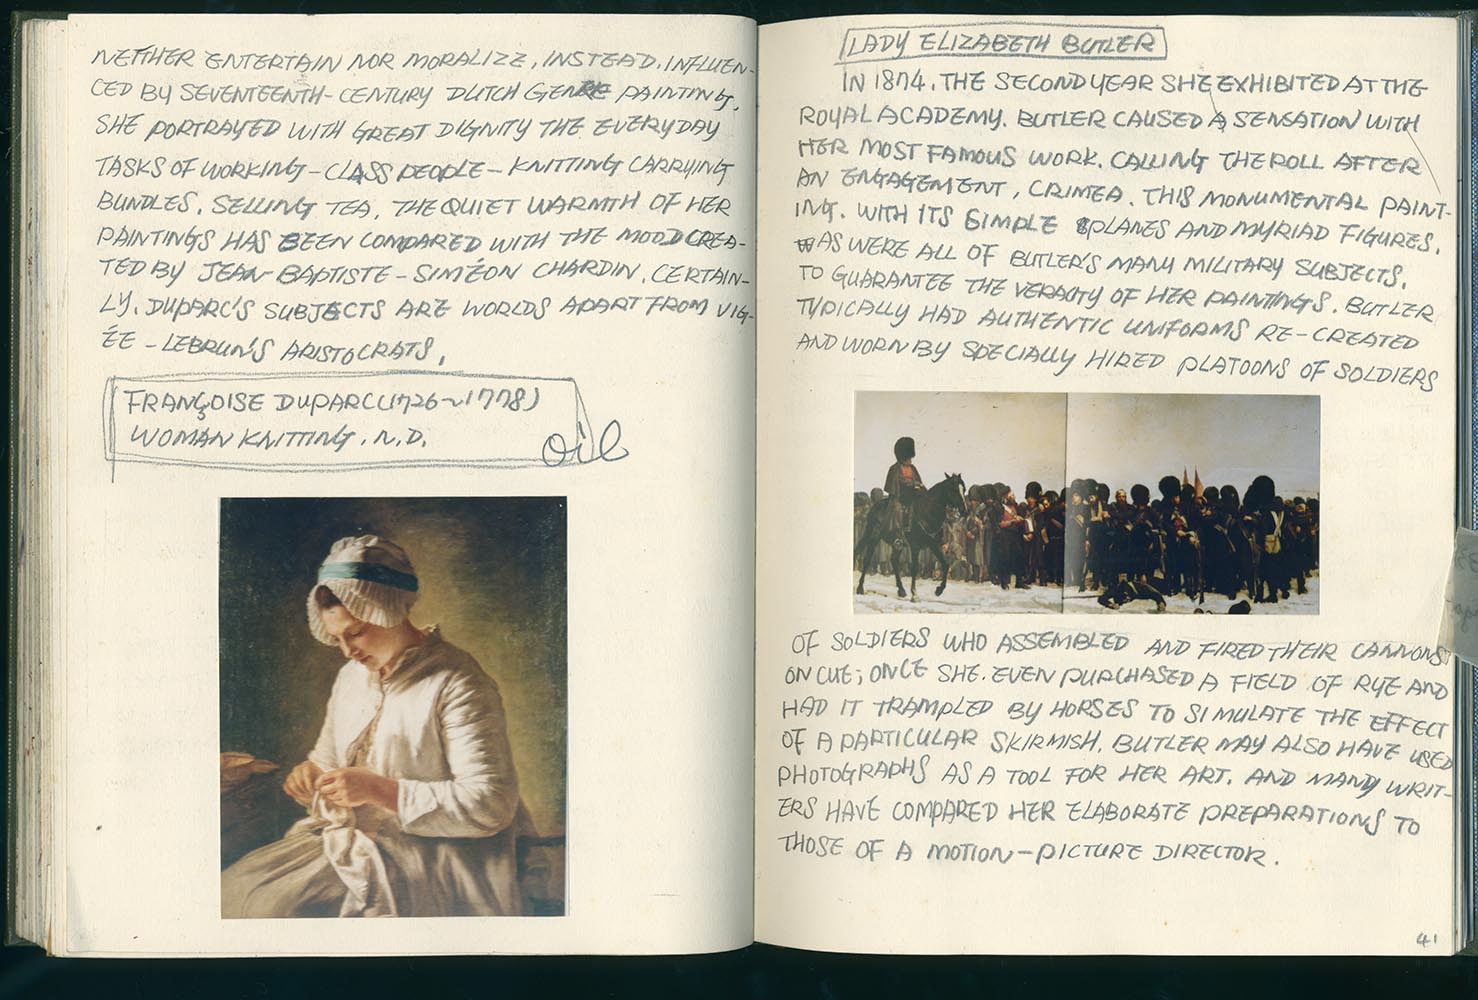 NEITHER ENTERTAIN NOR MORALIZE, INSTEAD, INFLUEN-
CED BY SEVENTEENTH-CENTURY DUTCH GENRE PAINTING,
SHE PORTRAYED WITH GREAT DIGNITY THE EVERYDAY
TASKS OF WORKING-CLASS PEOPLE-KNITTING CARRYING
BUNDLES, SELLING TEA, THE QUIET WARMTH OF HER
PAINTINGS HAS BEEN COMPARED WITH THE MOOD CREA-
TED BY JEAN-BAPTISTE-SIMÉON CHARDIN, CERTAIN-
LY, DUPARC'S SUBJECTS ARE WORLDS APART FROM VIG-
ÉE-LEBRUN'S ARISTOCRATS.
FRANÇOISE DUPARC (1726~1778)
WOMAN KNITTING, N.D.
oil
LADY ELIZABETH BUTLER
IN 1874, THE SECOND YEAR SHE EXHIBITED AT THE
ROYAL ACADEMY. BUTLER CAUSED A SENSATION WITH
HER MOST FAMOUS WORK. CALLING THE ROLL AFTER
AN ENGAGEMENT, CRIMEA. THIS MONUMENTAL PAINT-
ING. WITH ITS SIMPLE PLANES AND MYRIAD FIGURES,
AS WERE ALL OF BUTLER'S MANY MILITARY SUBJECTS.
TO GUARANTEE THE VERACITY OF HER PAINTINGS. BUTLER
TYPICALLY HAD AUTHENTIC UNIFORMS RE-CREATED
AND WORN BY SPECIALLY HIRED PLATOONS OF SOLDIERS
OF SOLDIERS WHO ASSEMBLED AND FIRED THEIR CANNONS
ON CUE; ONCE SHE EVEN PURCHASED A FIELD OF RYE AND
HAD IT TRAMPLED BY HORSES TO SIMULATE THE EFFECT
OF A PARTICULAR SKIRMISH. BUTLER MAY ALSO HAVE USED
PHOTOGRAPHS AS A TOOL FOR HER ART. AND MANY WRIT-
ERS HAVE COMPARED HER ELABORATE PREPARATIONS TO
THOSE OF A MOTION-PICTURE DIRECTOR.
41